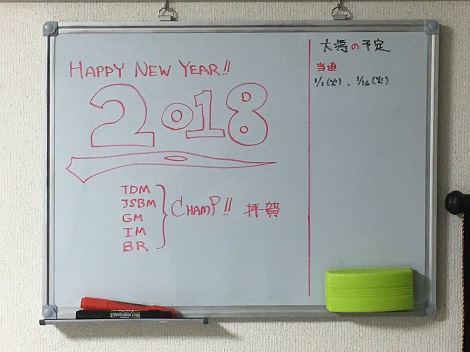 HAPPY NEW YEAR!!
2018
TDM
JSBM
GM
IM
BR
CHAMP!! 拝賀
大将の予定
当直
1/1(火). 1/16(火)